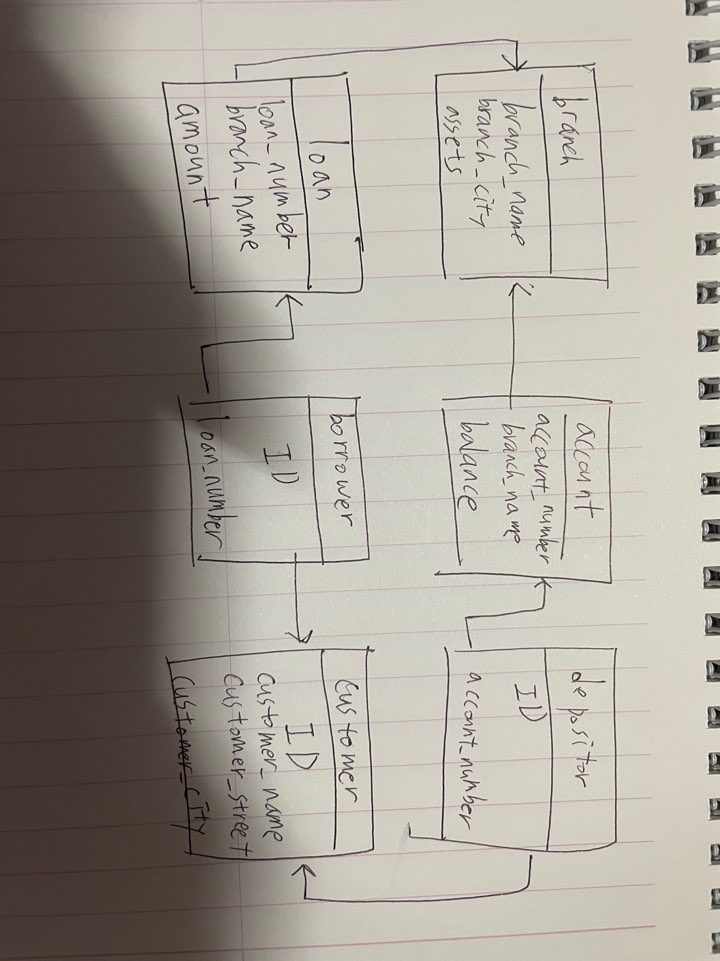 branch
branch_name
branch_city
assets
account
account_number
branch_name
balance
depositor
ID
account_number
loan
loan_number
branch_name
amount
borrower
ID
loan_number
customer
ID
customer_name
customer_street
customer_city